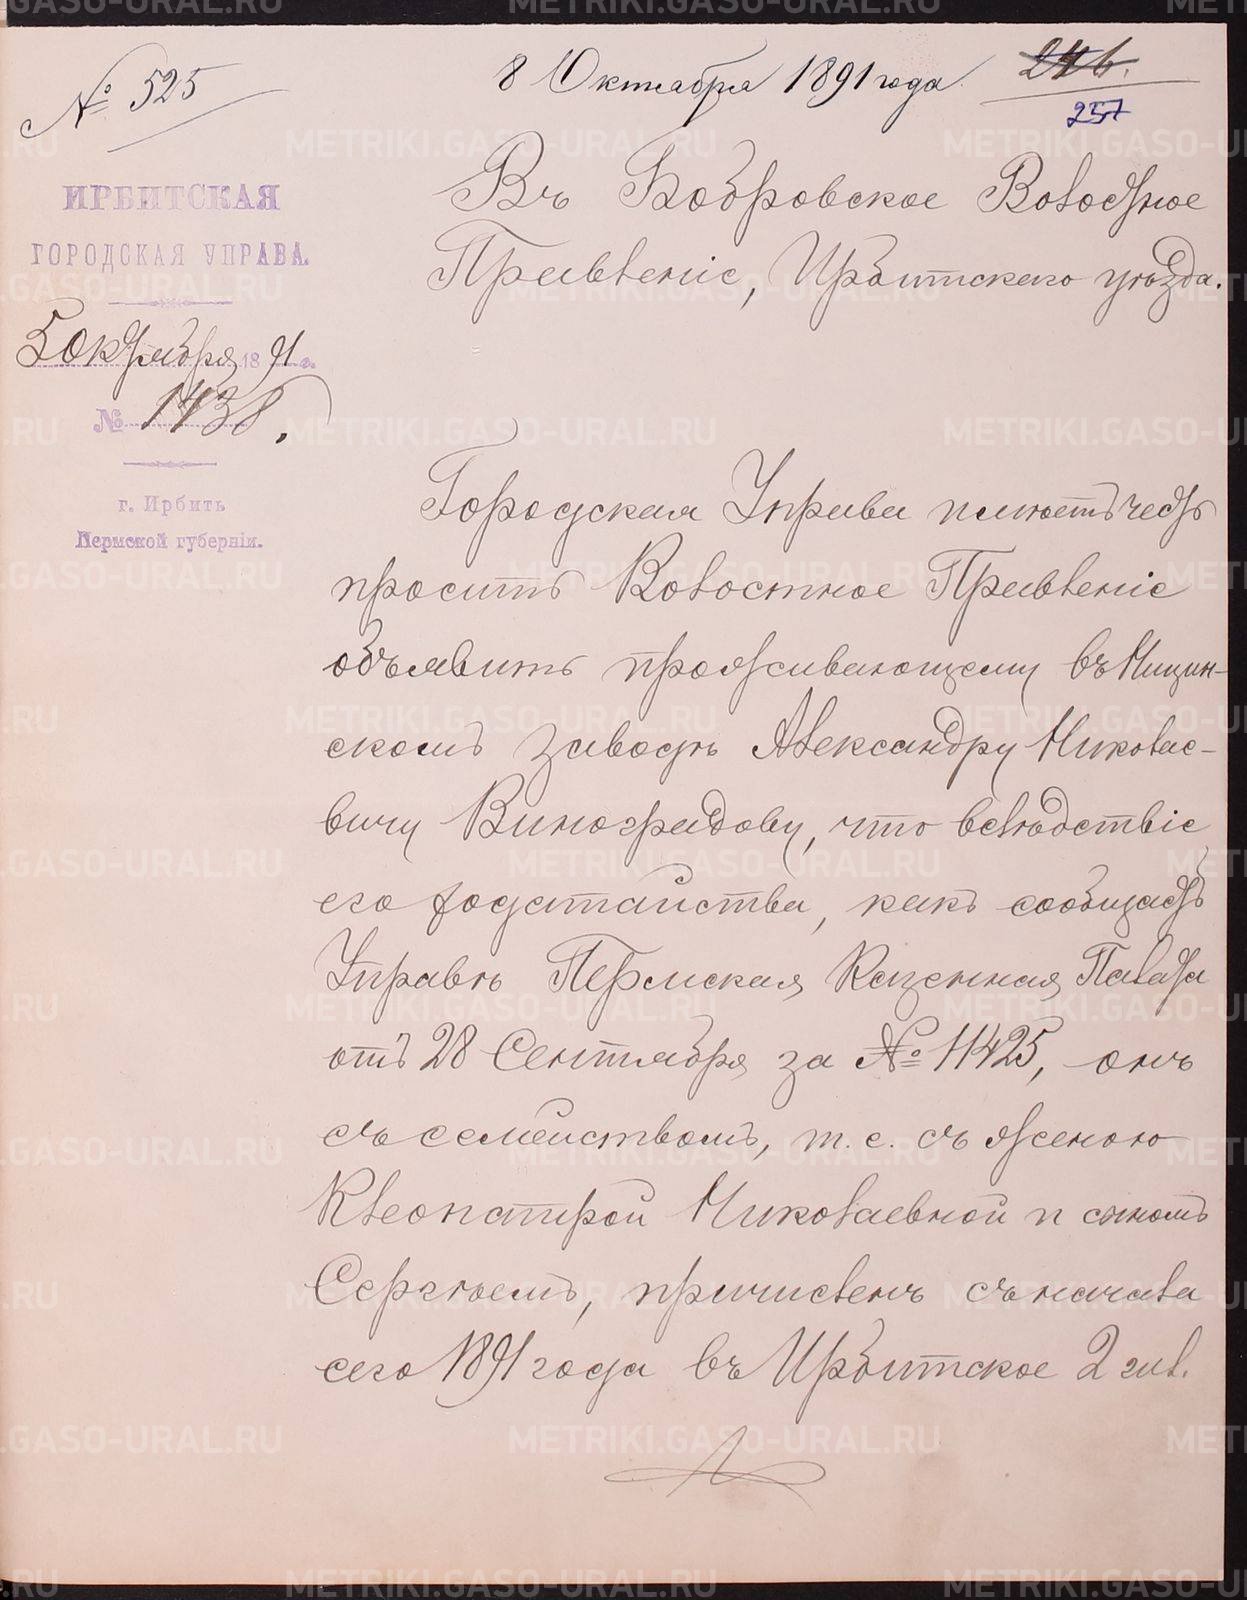 № 525
8 Октября 1891 года
246.
257
ИРБИТСКАЯ
ГОРОДСКАЯ УПРАВА.
5 Октября 1891 г.
№ 1438.
г. Ирбить
Пермской губерніи.
Въ Бобровское Волостное
Правленіе, Ирбитскаго уѣзда.
Городская Управа имѣетъ честь
проситъ Волостное Правленіе
объявить проживающему въ Ницин-
скомъ заводѣ Александру Николае-
вичу Виноградову, что вслѣдствіе
его ходатайства, какъ сообщаетъ
Управѣ Пермская Казенная Палата
отъ 28 Сентября за № 11425, онъ
съ семействомъ, т. е. съ женою
Клеопатрой Николаевной и сыномъ
Сергѣемъ, причисленъ съ начала
сего 1891 года въ Ирбитское 2 гил.
METRIKI.GASO-URAL.RU